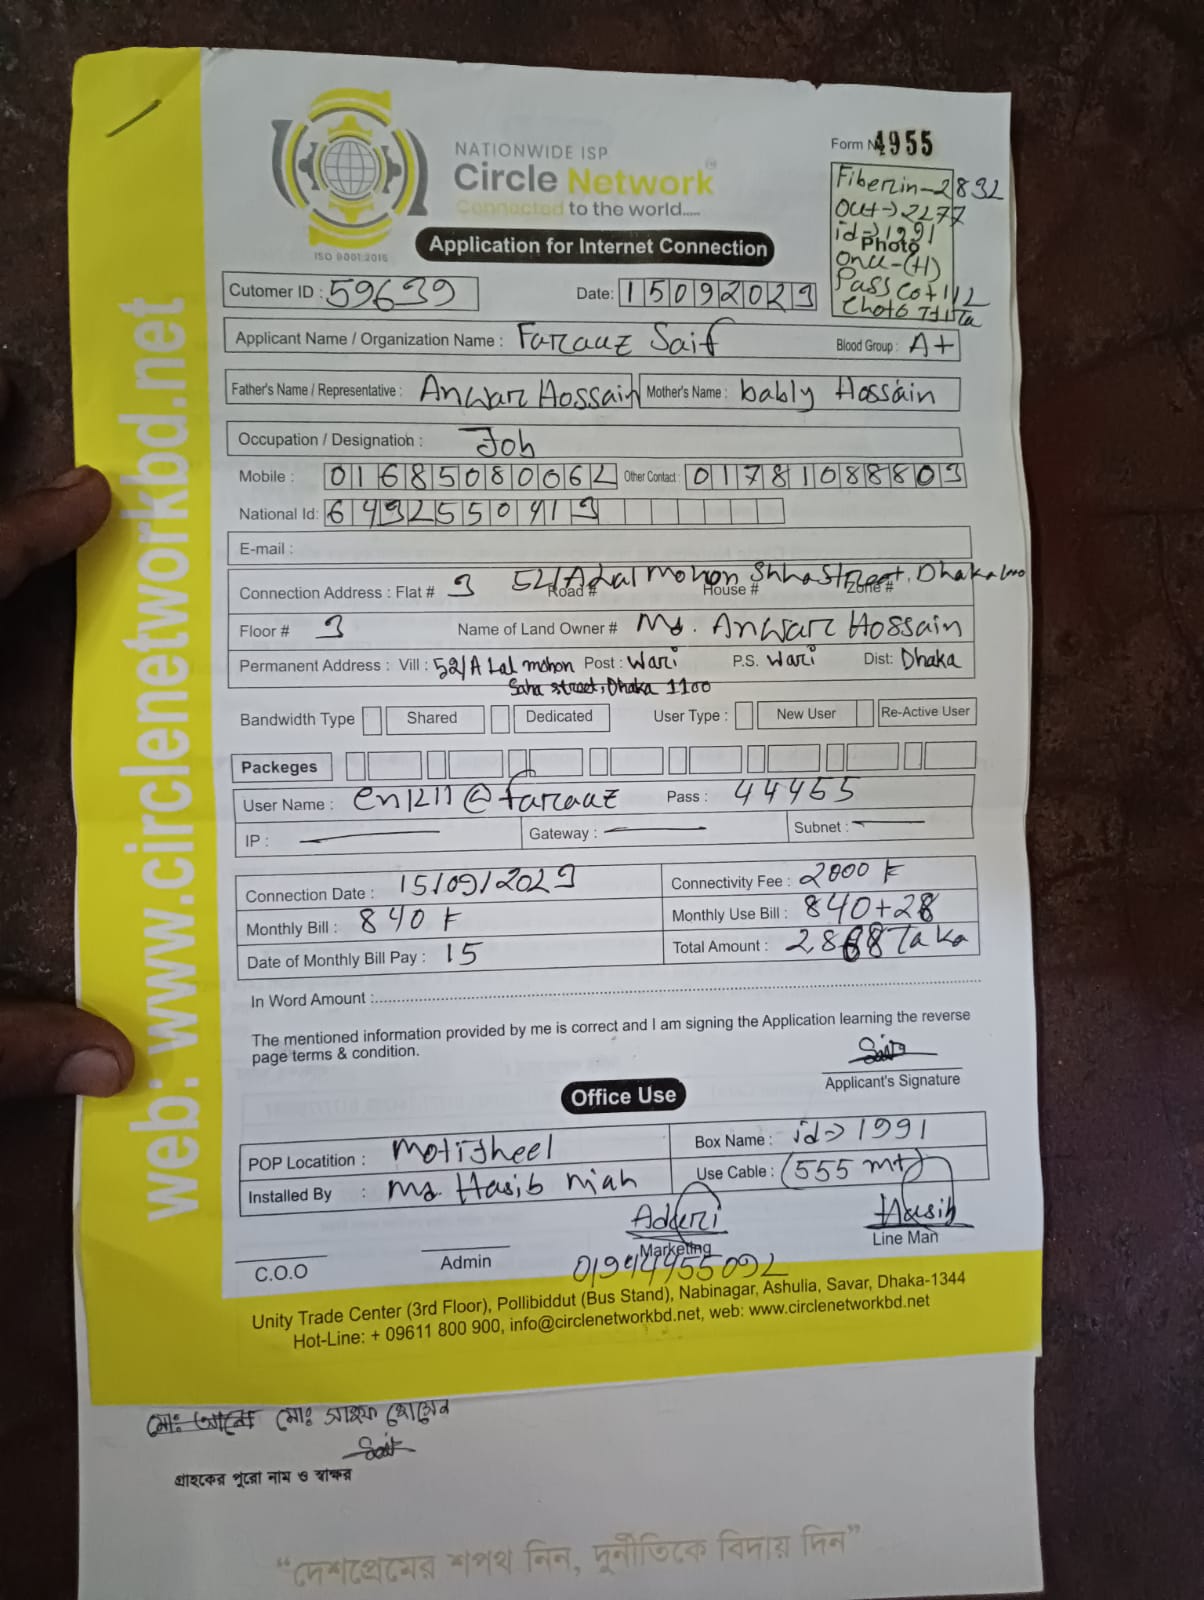 NATIONWIDE ISP
Circle Network
Connected to the world.....
ISO 9001:2015
Form N 4955
Fiberin-2832
Out->2277
id->1991
Photo
onu-(H)
Pass
Application for Internet Connection
Cutomer ID : 59639
Date: 15092023
Applicant Name / Organization Name : Faraaz Saif
Blood Group : A+
Father's Name / Representative : Anwar Hossain Mother's Name : bably Hossain
Occupation / Designation : Job
Mobile : 01685080062 Other Contact : 01781088803
National Id: 6432550413
E-mail :
Connection Address : Flat # 3 52/A Lal mohon Shha Street, Dhaka
Road # House # Zone #
Floor # 3 Name of Land Owner # Md. Anwar Hossain
Permanent Address : Vill : 52/A Lal mohon Post : Wari P.S. Wari Dist: Dhaka
Saha street, Dhaka 1100
Bandwidth Type Shared Dedicated User Type : New User Re-Active User
Packeges
User Name : cn1211@faraaz Pass : 44455
IP : Gateway : Subnet :
Connection Date : 15/09/2023 Connectivity Fee : 2000 F
Monthly Bill : 840 F Monthly Use Bill : 840+28
Date of Monthly Bill Pay : 15 Total Amount : 2868 Taka
In Word Amount :
The mentioned information provided by me is correct and I am signing the Application learning the reverse
page terms & condition.
Saif
Applicant's Signature
Office Use
POP Locatition : Motijheel Box Name : id->1991
Installed By : Md. Hasib miah Use Cable : (555 mt)
Hasib
C.O.O Admin Marketing Line Man
01944455092
Unity Trade Center (3rd Floor), Pollibiddut (Bus Stand), Nabinagar, Ashulia, Savar, Dhaka-1344
Hot-Line: + 09611 800 900, info@circlenetworkbd.net, web: www.circlenetworkbd.net
web: www.circlenetworkbd.net
মোঃ সাইফ হোসেন
Saif
গ্রাহকের পুরো নাম ও স্বাক্ষর
“দেশপ্রেমের শপথ নিন, দুর্নীতিকে বিদায় দিন”